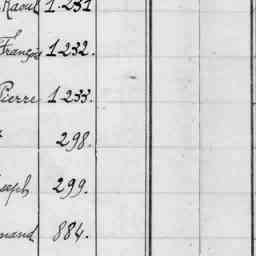 Raoul 1.231
François 1232.
Pierre 1233.
298.
seph 299.
mand 884.